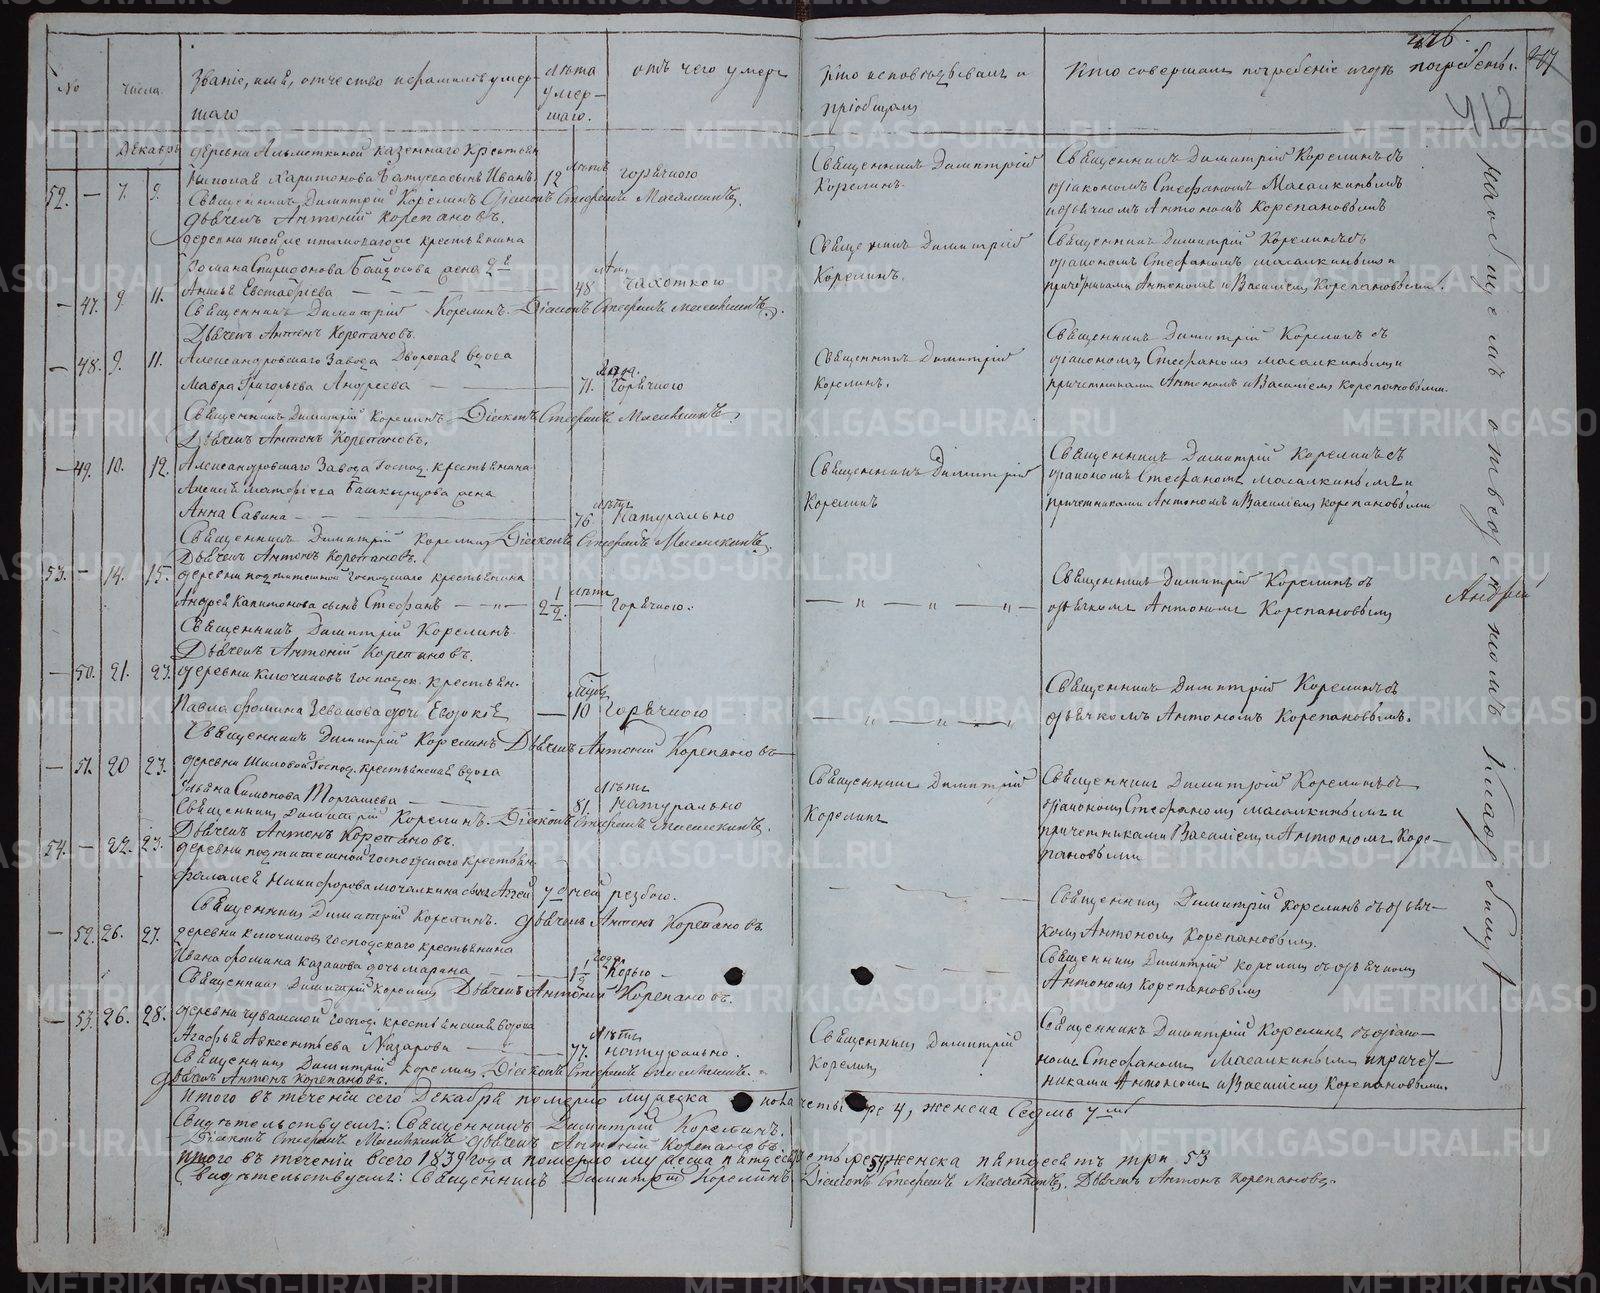 426.
417
512
№
числа
Званіе, имя, отчество и фамилія умер-
шаго
лѣта
умер-
шаго.
отъ чего умеръ
Кто исповѣдывалъ и
пріобщалъ
Кто совершалъ погребеніе и гдѣ погребены.
Декабрь
деревни казеннаго крестьян
52. — 7. 9.
Николая Харитонова сынъ Иванъ. 12 лѣтъ горячкою
Священникъ Димитрій Корелинъ Діаконъ Стефанъ Масалкинъ.
Дьячекъ Антоній Корепановъ.
Священникъ Димитрій
Корелинъ.
Священникъ Димитрій Корелинъ съ
діакономъ Стефаномъ Масалкинымъ
и дьячкомъ Антономъ Корепановымъ
— 47. 9 11.
деревни той же крестьянина
Романа Спиридонова жена 2я
Евстафіева — 48 лѣтъ чахоткою
Священникъ Димитрій Корелинъ. Діаконъ Стефанъ Масалкинъ.
Дьячекъ Антонъ Корепановъ.
Священникъ Димитрій
Корелинъ.
Священникъ Димитрій Корелинъ съ
діакономъ Стефаномъ Масалкинымъ и
причетниками Антономъ и Василіемъ Корепановыми.
— 48. 9. 11.
Александровскаго Завода Дворовая вдова
Мавра Григорьева Андреева — 71. года. горячкою
Священникъ Димитрій Корелинъ Діаконъ Стефанъ Масалкинъ.
Дьячекъ Антонъ Корепановъ.
Священникъ Димитрій
Корелинъ.
Священникъ Димитрій Корелинъ съ
діакономъ Стефаномъ Масалкинымъ и
причетниками Антономъ и Василіемъ Корепановыми.
— 49. 10. 12.
Александровскаго Завода Господ. крестьянина
Алексѣя Матфіева Башкырцова жена
Анна Савина — 76 лѣтъ натурально
Священникъ Димитрій Корелинъ Діаконъ Стефанъ Масалкинъ.
Дьячекъ Антонъ Корепановъ.
Священникъ Димитрій
Корелинъ
Священникъ Димитрій Корелинъ съ
діакономъ Стефаномъ Масалкинымъ и
причетниками Антономъ и Василіемъ Корепановыми
53. — 14. 15.
деревни господскаго крестьянина
Андрея Капитонова сынъ Стефанъ — „ — 2½ лѣтъ — горячкою.
Священникъ Димитрій Корелинъ
Дьячекъ Антоній Корепановъ.
— „ — „ — „ —
Священникъ Димитрій Корелинъ съ
дьячкомъ Антономъ Корепановымъ
Андрей
— 50. 21. 23.
деревни Ключиковъ господск. крестьян.
Павла Фомина дочь Евдокія — 10 горячкою
Священникъ Димитрій Корелинъ Дьячекъ Антоній Корепановъ
— „ — „ — „
Священникъ Димитрій Корелинъ съ
дьячкомъ Антономъ Корепановымъ.
— 51. 20 23.
деревни Шиловой Господ. крестьянская вдова
Ульяна Симонова Торгашева — 81. лѣтъ натурально
Священникъ Димитрій Корелинъ. Діаконъ Стефанъ Масалкинъ.
Дьячекъ Антонъ Корепановъ.
Священникъ Димитрій
Корелинъ
Священникъ Димитрій Корелинъ съ
діакономъ Стефаномъ Масалкинымъ и
причетниками Василіемъ и Антономъ Коре-
пановыми
54. — 22. 23.
деревни господскаго крестьян.
Никифорова Мочалкина сынъ 7 дней рѣзбою.
Священникъ Димитрій Корелинъ. Дьячекъ Антонъ Корепановъ
Священникъ Димитрій Корелинъ съ дьяч-
комъ Антономъ Корепановымъ.
— 52. 26. 27.
деревни Ключиковъ господскаго крестьянина
Ивана Фомина Казакова дочь Марина — 1½ года Корью —
Священникъ Димитрій Корелинъ Дьячекъ Антоній Корепановъ.
Священникъ Димитрій Корелинъ съ дьячкомъ
Антономъ Корепановымъ
— 53. 26. 28.
деревни Чувашской господ. крестьянская вдова
Агафья Авксентьева Назарова — 77. лѣтъ натурально.
Священникъ Димитрій Корелинъ Діаконъ Стефанъ Масалкинъ.
Дьячекъ Антонъ Корепановъ.
Священникъ Димитрій
Корелинъ
Священникъ Димитрій Корелинъ съ діако-
номъ Стефаномъ Масалкинымъ и причет-
никами Антономъ и Василіемъ Корепановыми.
на общемъ отведенномъ кладбищѣ
Итого въ теченіи сего Декабря померло мужеска пола четыре 4, женска Седмь 7мь
Свидѣтельствуемъ: Священникъ Димитрій Корелинъ.
Діаконъ Стефанъ Масалкинъ Дьячекъ Антоній Корепановъ.
Итого въ теченіи всего 1839 года померло мужеска пятдесятъ четыре 54, женска пятдесятъ три 53
Свидѣтельствуемъ: Священникъ Димитрій Корелинъ Діаконъ Стефанъ Масалкинъ. Дьячекъ Антонъ Корепановъ.
METRIKI.GASO-URAL.RU